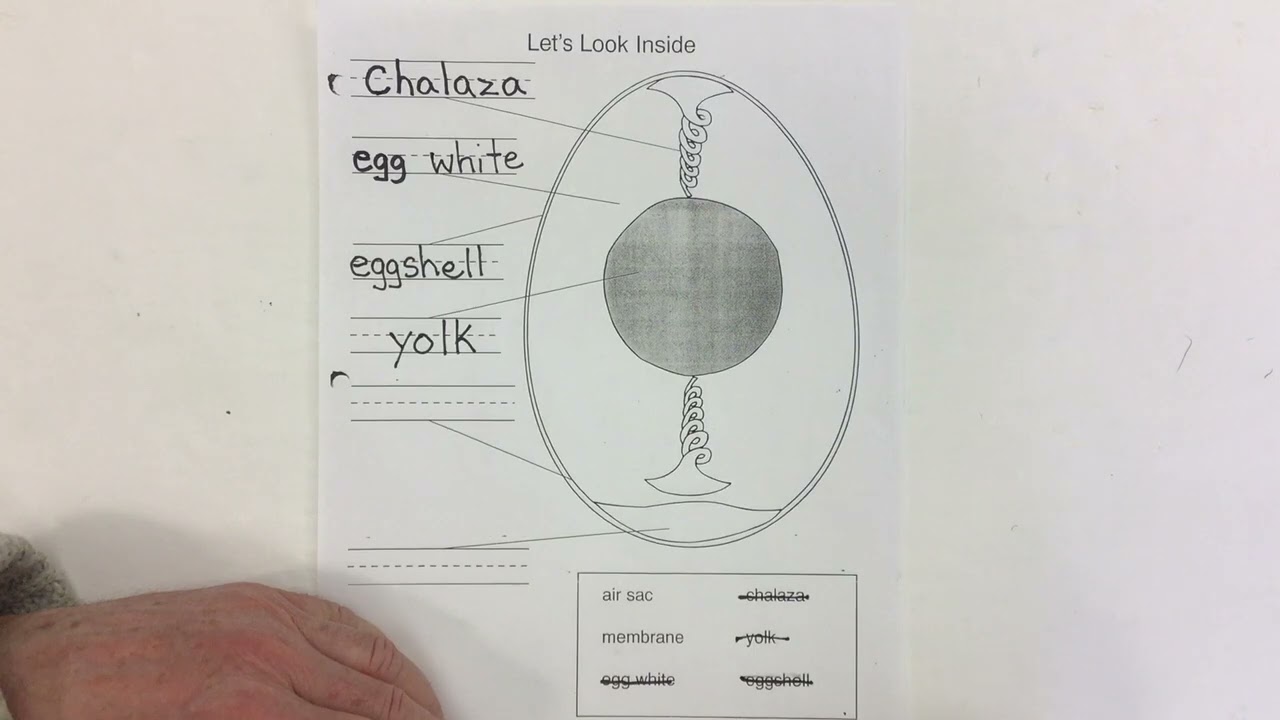 Let's Look Inside
Chalaza
egg white
eggshell
yolk
air sac chalaza
membrane yolk
egg white eggshell